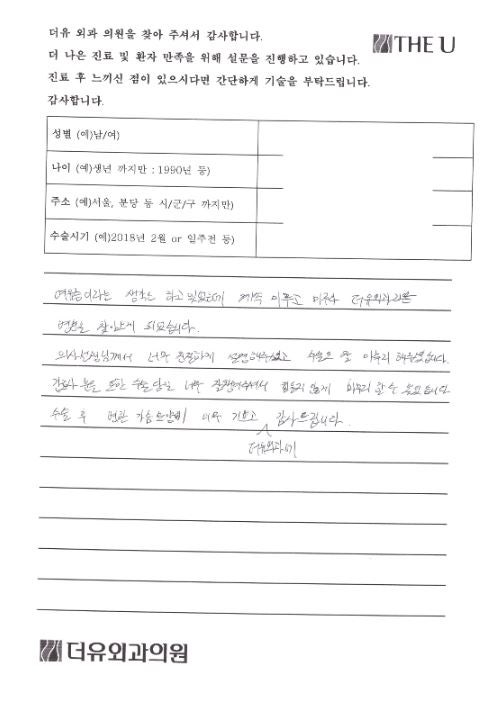 더유 외과 의원을 찾아 주셔서 감사합니다.
THE U
더 나은 진료 및 환자 만족을 위해 설문을 진행하고 있습니다.
진료 후 느끼신 점이 있으시다면 간단하게 기술을 부탁드립니다.
감사합니다.
성별 (예)남/여)
나이 (예)생년 까지만 : 1990년 등)
주소 (예)서울, 분당 등 시/군/구 까지만)
수술시기 (예)2018년 2월 or 일주전 등)
여유증이라는 생각은 하고 있었는데 계속 미루고 미루다 더유외과라는
병원을 찾아오게 되었습니다.
의사선생님께서 너무 친절하게 설명해주셨고 수술도 잘 마무리 해주셨습니다.
간호사 분들 또한 수술 당일 너무 친절하셔서 힘들지 않게 마무리 할 수 있었습니다
수술 후 변한 가슴 모양이 너무 기쁘고 감사드립니다.
더유외과에
더유외과의원